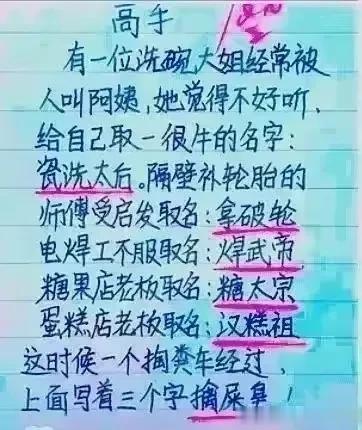 高手
有一位洗碗大姐经常被
人叫阿姨,她觉得不好听,
给自己取一很牛的名字:
瓷洗太后。隔壁补轮胎的
师傅受启发取名:拿破轮
电焊工不服取名:焊武帝
糖果店老板取名:糖太宗
蛋糕店老板取名:汉糕祖
这时候一个掏粪车经过,
上面写着三个字擒屎皇!